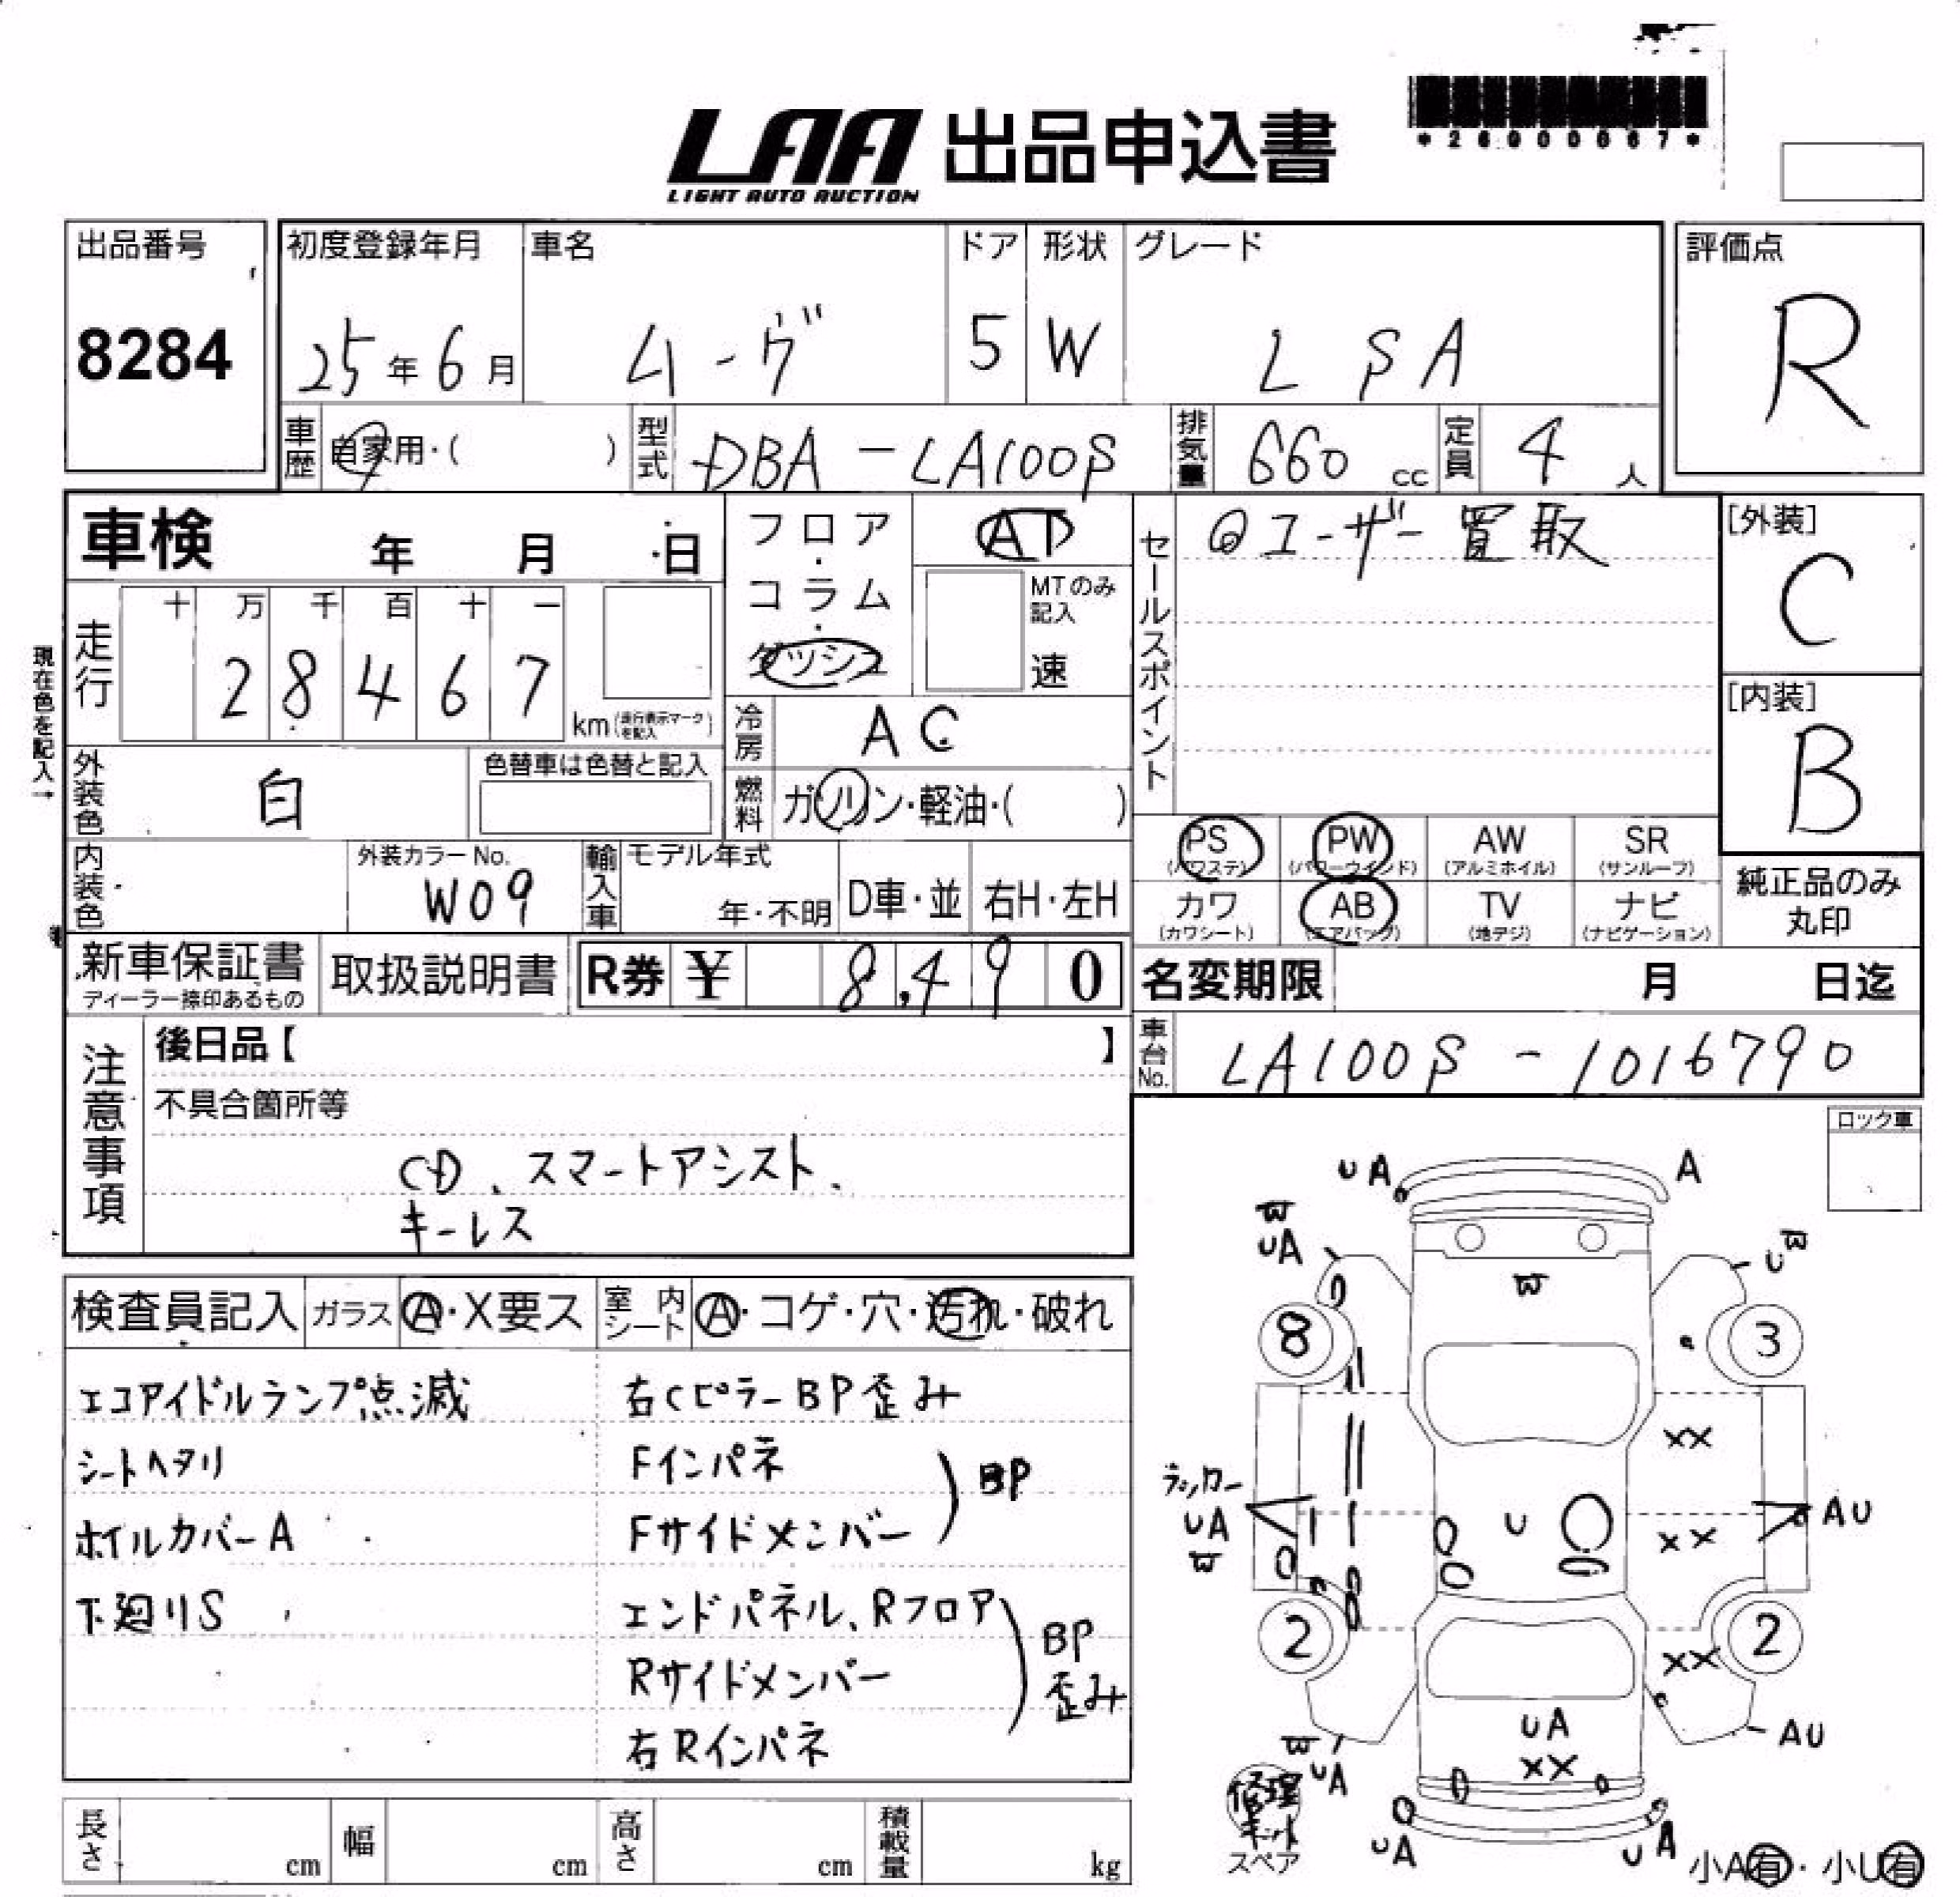 LAA 出品申込書
LIGHT AUTO AUCTION
*26000667*
出品番号
8284
初度登録年月
25年6月
車名
ムーヴ
ドア
5
形状
W
グレード
L SA
評価点
R
車歴
自家用・( )
型式
DBA-LA100S
排気量
660 cc
定員
4 人
車検 年 月 日
フロア・コラム・ダッシュ
AT
MTのみ記入
速
走行
十 万 千 百 十 一
2 8 4 6 7
km (走行表示マークを記入)
現在色を記入→
外装色
白
色替車は色替と記入
冷房
AC
燃料
ガソリン・軽油・( )
内装色
外装カラーNo.
W09
輸入車
モデル年式
年・不明
D車・並
右H・左H
セールスポイント
◎ユーザー買取
[外装]
C
[内装]
B
PS
(パワステ)
PW
(パワーウインド)
AW
(アルミホイル)
SR
(サンルーフ)
カワ
(カワシート)
AB
(エアバッグ)
TV
(地デジ)
ナビ
(ナビゲーション)
純正品のみ
丸印
新車保証書
ディーラー捺印あるもの
取扱説明書
R券 ¥ 8,490
名変期限 月 日迄
車台No.
LA100S-1016790
注意事項
後日品【 】
不具合箇所等
CD、スマートアシスト、
キーレス
ロック車
検査員記入
ガラス
A・X要ス
室内シート
A・コゲ・穴・汚れ・破れ
エコアイドルランプ点滅
シートヘタリ
ホイルカバーA
下廻りS
右CピラーBP歪み
Fインパネ
Fサイドメンバー
BP
エンドパネル、Rフロア
Rサイドメンバー
右Rインパネ
BP
歪み
UA
A
W
UA
W
U
W
8
3
XX
ラッカー
UA
W
U
AU
XX
2
2
XX
UA
XX
AU
W
UA
修理
キット
スペア
UA
UA
小A有・小U有
長さ
cm
幅
cm
高さ
cm
積載量
kg